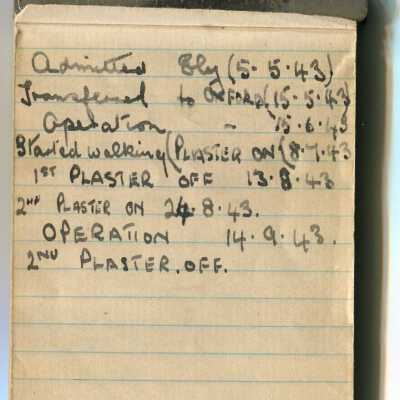 Admitted Ely (5.5.43)
Transferred to OXFORD (15.5.43
Operation - 15.6.43
Started walking (PLASTER ON (8.7.43
1ST PLASTER OFF 13.8.43
2ND PLASTER ON 24.8.43.
OPERATION 14.9.43.
2ND PLASTER. OFF.